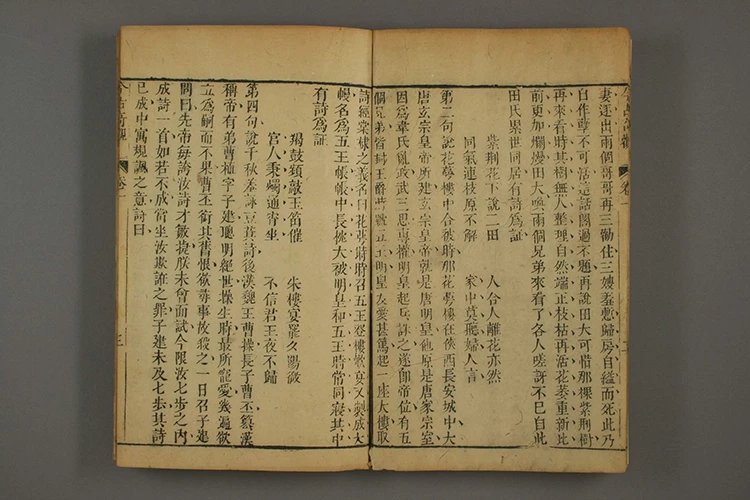 妻逐出兩個哥哥再三勸住三嫂羞慙歸房自縊而死此乃
自作孽不可活這話閣過不題再說田大可惜那棵紫荆樹
再來看時其樹無人整理自然端正枝枯再活花萎重新比
前更加爛熳田大喚兩個兄弟來看了各人嗟訝不已自此
田氏累世同居有詩爲証
紫荆花下說三田 人合人離花亦然
同氣連枝原不解 家中莫聽婦人言
第二句說花蕚樓中合被時那花蕚樓在陜西長安城中大
唐玄宗皇帝所建玄宗皇帝就是唐明皇他原是唐家宗室
因爲韋氏亂政武三思專權明皇起兵誅之遂卽帝位有五
個兄弟皆封王爵時號五王明皇友愛甚篤起一座大樓取
詩經棠棣之義名曰花萼時時召五王登樓歡宴又製成大
幔名爲五王帳帳中長枕大被明皇和五王時常同寢其中
有詩爲証
羯鼓頻敲玉笛催 朱樓宴罷夕陽微
宮人秉燭通宵坐 不信君王夜不歸
第四句說千秋羞詠豆萁詩後漢魏王曹操長子曹丕篡漢
稱帝有弟曹植字子建聰明絕世操生時最所寵愛幾遍欲
立爲嗣而不果曹丕銜其舊恨欲尋事故殺之一日召子建
問曰先帝每誇汝詩才敏捷朕未曾面試今限汝七步之內
成詩一首如若不成當坐汝欺誑之罪子建未及七步其詩
已成中寓規諷之意詩曰
今古奇觀 卷一 三